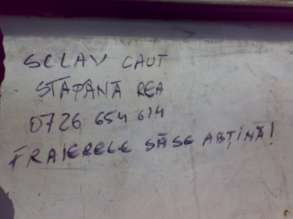 SCLAV CAUT
STĂPÂNĂ REA
0726 654 614
FRAIERELE SĂSE ABȚINĂ!